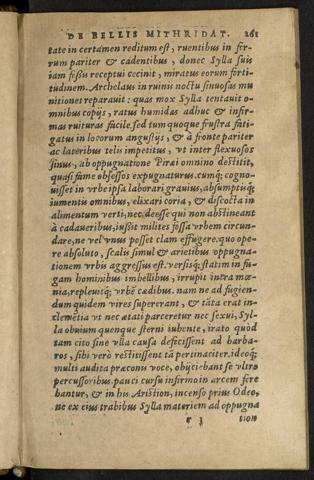 DE BELLIS MITHRIDAT. 261
tate in certamen reditum est, ruentibus in ferrum
rum pariter & cadentibus, donec Sylla suis
iam fessis receptui cecinit, miratus eorum forti-
tudinem. Archelaus in ruinis noctu sinuosas mu
nitiones reparauit: quas mox Sylla tentauit o-
mnibus copijs, ratus humidas adhuc & infir-
mas ruituras facile. sed tum quoque frustra fati-
gatus in locorum angustijs, & à fronte pariter
ac lateribus telis impetitus, vt inter flexuosos
sinus, ab oppugnatione Piræi omnino destitit,
quasi fame obsessos expugnaturus. cumq; cogno-
uisset in vrbe ipsa laborari grauius, absumptisq;
iumentis omnibus, elixari coria, & discocta in
alimentum verti, nec deesse qui non abstineant
à cadaueribus, iussit milites fossa vrbem circun-
dare, ne vel vnus posset clam effugere. quo ope-
re absoluto, scalis simul & arietibus oppugna-
tionem vrbis aggressus est. versisq; statim in fu-
gam hominibus imbellibus, irrupit intra mœ-
nia, repleuitq; vrbē cædibus. nam ne ad fugien-
dum quidem vires supererant, & tāta erat in-
clemētia vt nec ætati parceretur nec sexui, Syl-
la obuium quenque sterni iubente, irato quòd
tam cito sine vlla causa defecissent ad barba-
ros, sibi verò restitissent tā pertinaciter. ideoq;
multi audita præconis voce, obijciebant se vltro
percussoribus. pauci cursu infirmo in arcem fere
bantur, & in his Aristion, incenso prius Odeo,
ne ex eius trabibus Sylla materiem ad oppugna
tion